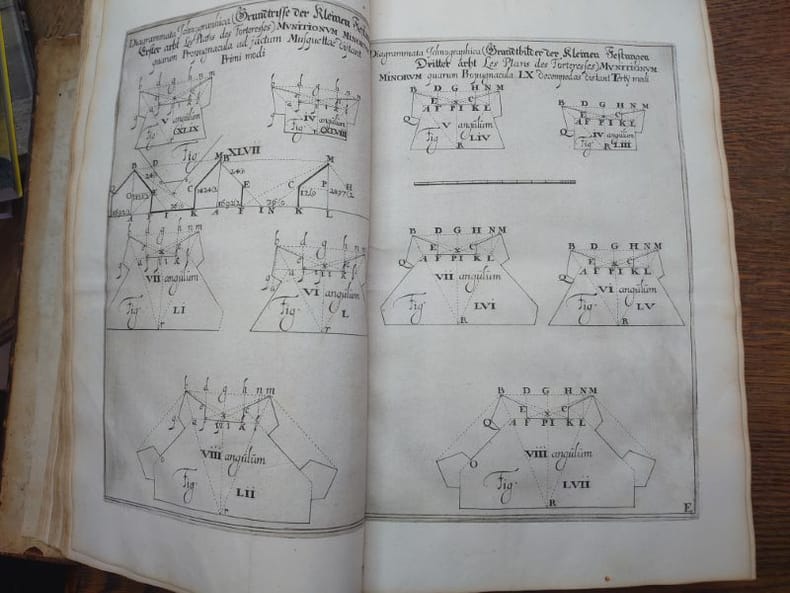 Diagrammata Ichnographica (Grundtrisse der Kleinen
Erster arht Les Plans des Forteresses) MVNITIONVM MINORVM
quarum Propugnacula ad jactum Musquettae distant
Primi modi
V angulum
XLIX
IV angulum
Fig XLVIII
Fig XLVII
B D M B M
C E C P H
A F I K A F I N K L
VII angulum
Fig LI
r
VI angulum
Fig L
r
b d g h n m
VIII angulum
Fig LII
r
Diagrammata Ichnographica (Grundtbilder der Kleinen Festungen
Dritter arht Les Plans des Forteresses) MVNITIONVM
MINORVM quarum Propugnacula LX decempedas distant Terty modi
B D G H N M
E x C
Q A F P I K L
V angulum
LIV
R
B D G H N M
E C
Q A F P I K L
IV angulum
Fig LIII
R
B D G H N M
E x C
Q A F P I K L
VII angulum
Fig LVI
R
B D G H N M
E x C
Q A F P I K L
VI angulum
Fig LV
R
B D G H N M
E x C
Q A F P I K L
O
VIII angulum
Fig LVII
R
E